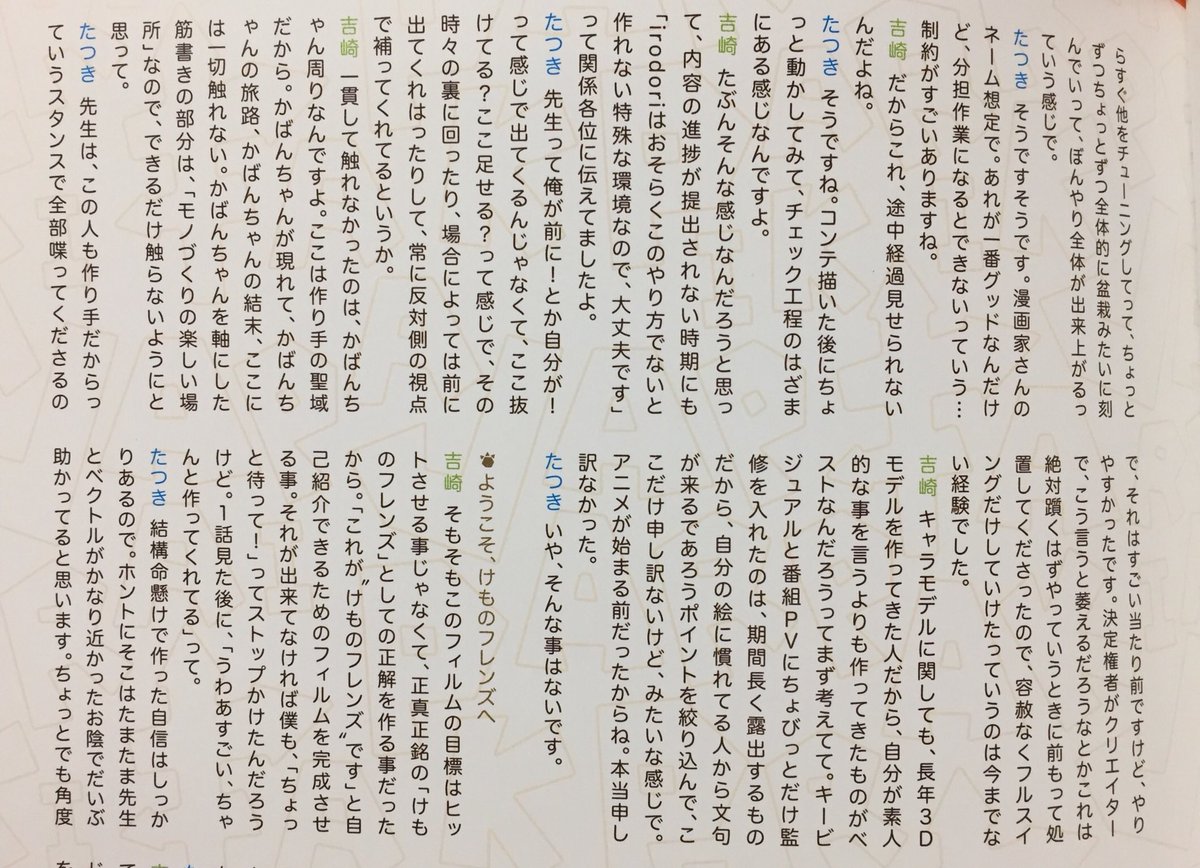 らすぐ他をチューニングしてって、ちょっと
ずつちょっとずつ全体的に盆栽みたいに刻
んでいって、ぼんやり全体が出来上がるっ
ていう感じで。
たつき そうですそうです。漫画家さんの
ネーム想定で。あれが一番グッドなんだけ
ど、分担作業になるとできないっていう…
制約がすごいありますね。
吉崎 だからこれ、途中経過見せられない
んだよね。
たつき そうですね。コンテ描いた後にちょ
っと動かしてみて、チェック工程のはざま
にある感じなんですよ。
吉崎 たぶんそんな感じなんだろうと思っ
て、内容の進捗が提出されない時期にも
「irodoriはおそらくこのやり方でないと
作れない特殊な環境なので、大丈夫です」
って関係各位に伝えてましたよ。
たつき 先生って俺が前に!とか自分が!
って感じで出てくるんじゃなくて、ここ抜
けてる?ここ足せる?って感じで、その
時々の裏に回ったり、場合によっては前に
出てくれはったりして、常に反対側の視点
で補ってくれてるというか。
吉崎 一貫して触れなかったのは、かばんち
ゃん周りなんですよ。ここは作り手の聖域
だから。かばんちゃんが現れて、かばんち
ゃんの旅路、かばんちゃんの結末、ここに
は一切触れない。かばんちゃんを軸にした
筋書きの部分は、「モノづくりの楽しい場
所」なので、できるだけ触らないようにと
思って。
たつき 先生は、この人も作り手だからっ
ていうスタンスで全部喋ってくださるの
で、それはすごい当たり前ですけど、やり
やすかったです。決定権者がクリエイター
で、こう言うと萎えるだろうなとかこれは
絶対躓くはずやっていうときに前もって処
置してくださったので、容赦なくフルスイ
ングだけしていけたっていうのは今までな
い経験でした。
吉崎 キャラモデルに関しても、長年3D
モデルを作ってきた人だから、自分が素人
的な事を言うよりも作ってきたものがベ
ストなんだろうってまず考えてて。キービ
ジュアルと番組PVにちょびっとだけ監
修を入れたのは、期間長く露出するもの
だから、自分の絵に慣れてる人から文句
が来るであろうポイントを絞り込んで、こ
こだけ申し訳ないけど、みたいな感じで。
アニメが始まる前だったからね。本当申し
訳なかった。
たつき いや、そんな事はないです。
ようこそ、けものフレンズへ
吉崎 そもそもこのフィルムの目標はヒッ
トさせる事じゃなくて、正真正銘の「けも
のフレンズ」としての正解を作る事だった
から。「これが〝けものフレンズ〟です」と自
己紹介できるためのフィルムを完成させ
る事。それが出来てなければ僕も、「ちょっ
と待って!」ってストップかけたんだろう
けど。1話見た後に、「うわあすごい、ちゃ
んと作ってくれてる」って。
たつき 結構命懸けで作った自信はしっか
りあるので。ホントにそこはたまたま先生
とベクトルがかなり近かったお陰でだいぶ
助かってると思います。ちょっとでも角度